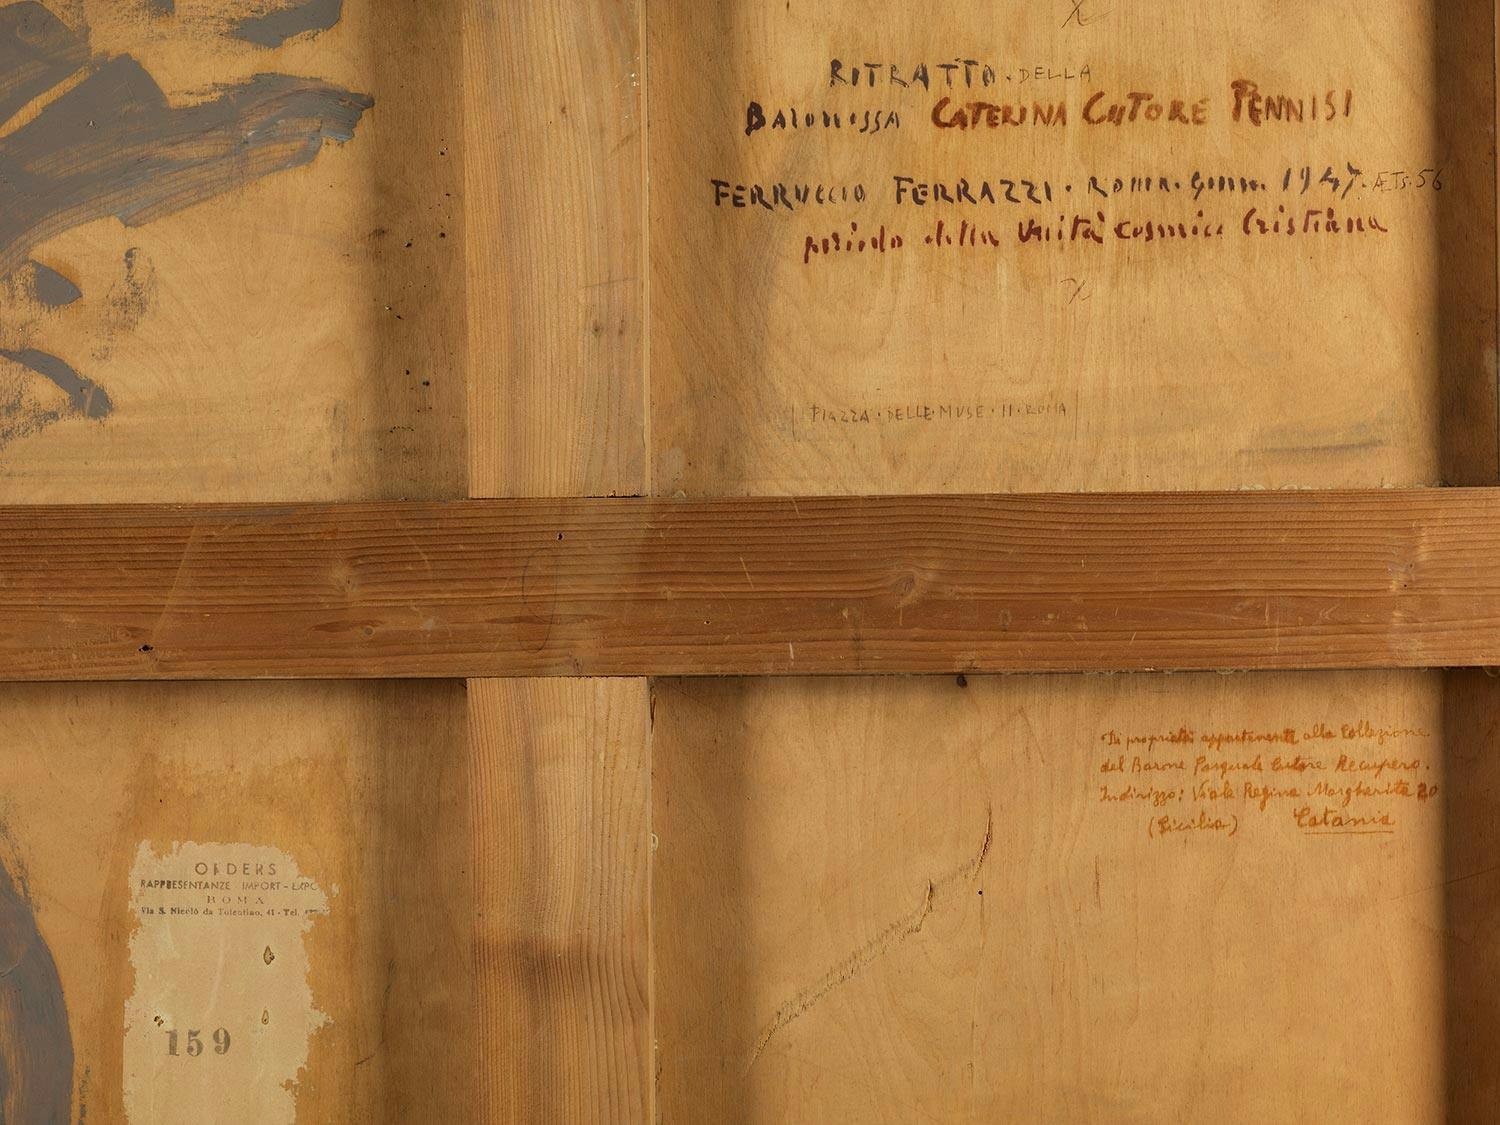 RITRATTO · DELLA
BARONESSA CATERINA CUTORE PENNISI
FERRUCCIO FERRAZZI · ROMA · 1947 · ÆTS · 56
periodo della Unità cosmica Cristiana
PIAZZA · DELLE · MUSE · 11 · ROMA
Di proprietà appartenente alla Collezione
del Barone Pasquale Cutore Recupero.
Indirizzo: Viale Regina Margherita 20
(Sicilia) Catania
ORDERS
RAPPRESENTANZE IMPORT - EXPO
ROMA
Via S. Nicolò da Tolentino, 41 - Tel.
159